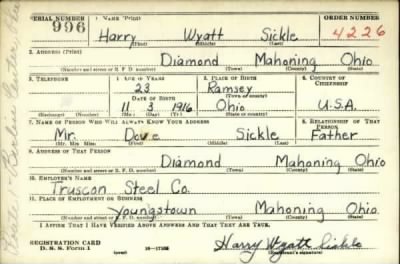 SERIAL NUMBER 1. NAME (Print) ORDER NUMBER
996 Harry Wyatt Sickle 4226
(First) (Middle) (Last)
2. ADDRESS (Print)
Diamond Mahoning Ohio
(Number and street or R. F. D. number) (Town) (County) (State)
3. TELEPHONE 4. AGE IN YEARS 5. PLACE OF BIRTH 6. COUNTRY OF CITIZENSHIP
23 Ramsey
DATE OF BIRTH (Town or county)
11 3 1916 Ohio U.S.A.
(Exchange) (Number) (Mo.) (Day) (Yr.) (State or country)
7. NAME OF PERSON WHO WILL ALWAYS KNOW YOUR ADDRESS 8. RELATIONSHIP OF THAT PERSON
Mr. Sickle Father
(Mr., Mrs., Miss) (First) (Middle) (Last)
9. ADDRESS OF THAT PERSON
Diamond Mahoning Ohio
(Number and street or R. F. D. number) (Town) (County) (State)
10. EMPLOYER'S NAME
Truscon Steel Co.
11. PLACE OF EMPLOYMENT OR BUSINESS
Youngstown Mahoning Ohio
(Number and street or R. F. D. number) (Town) (County) (State)
I AFFIRM THAT I HAVE VERIFIED ABOVE ANSWERS AND THAT THEY ARE TRUE.
REGISTRATION CARD
D. S. S. Form 1 (over) Harry Wyatt Sickle
(Registrant's signature)